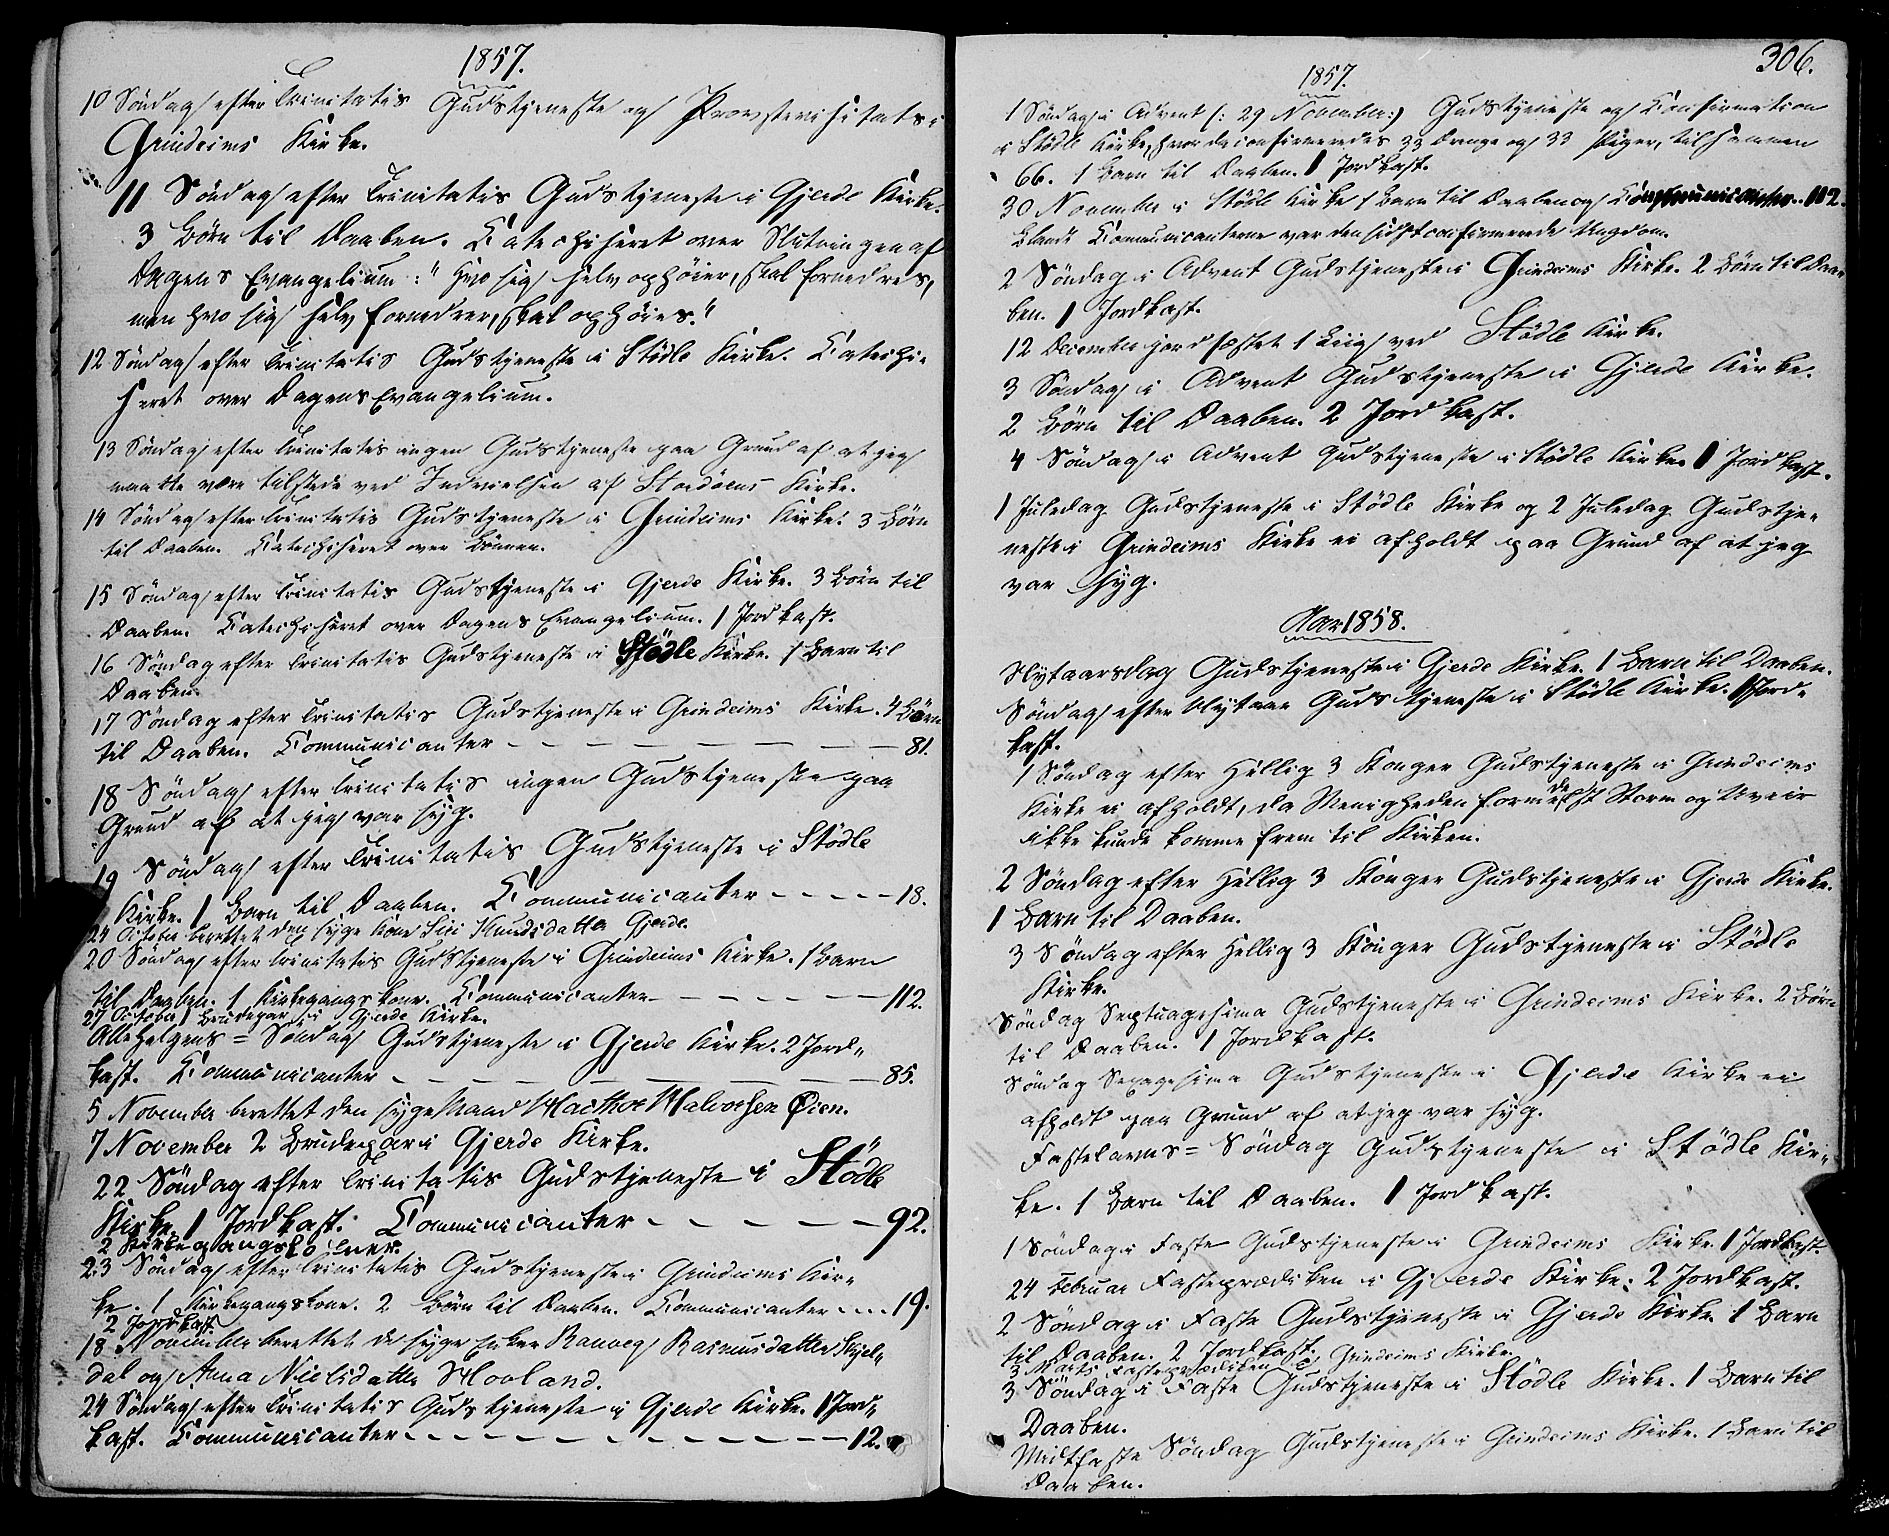 1857.
10 Søndag efter Trinitatis Gudstjeneste og Provstevisitats i
Grindeims Kirke.
11 Søndag efter Trinitatis Gudstjeneste i Gjerde Kirke.
3 Børn til Daaben. Catechiseret over Slutningen af
Dagens Evangelium: "Hvo sig selv ophøier, skal fornedres,
men hvo sig selv fornedrer, skal ophøies."
12 Søndag efter Trinitatis Gudstjeneste i Stødle Kirke. Catechi-
seret over Dagens Evangelium.
13 Søndag efter Trinitatis ingen Gudstjeneste paa Grund af at jeg
maatte være tilstede ved Indvielsen af Stordøens Kirke.
14 Søndag efter Trinitatis Gudstjeneste i Grindeims Kirke. 3 Børn
til Daaben. Catechiseret over Bønnen.
15 Søndag efter Trinitatis Gudstjeneste i Gjerde Kirke. 3 Børn til
Daaben. Catechiseret over Dagens Evangelium. 1 Jordkast.
16 Søndag efter Trinitatis Gudstjeneste i Stødle Kirke. 1 Barn til
Daaben.
17 Søndag efter Trinitatis Gudstjeneste i Grindeims Kirke. 4 Børn
til Daaben. Communicanter - - - - - - - - 81.
18 Søndag efter Trinitatis ingen Gudstjeneste paa
Grund af at jeg var syg.
19 Søndag efter Trinitatis Gudstjeneste i Stødle
Kirke. 1 Barn til Daaben. Communicanter - - - - - 18.
24 October berettet den syge Kone Siri Knudsdatter Gjerde.
20 Søndag efter Trinitatis Gudstjeneste i Grindeims Kirke. 1 Barn
til Daaben. 1 Kirkegangskone. Communicanter - - - - - - 112.
27 October 1 Brudepar i Gjerde Kirke.
Allehelgens = Søndag Gudstjeneste i Gjerde Kirke. 2 Jord-
kast. Communicanter - - - - - - - - 85.
5 November berettet den syge Mand Halvorsen Øien.
7 November 2 Brudepar i Gjerde Kirke.
22 Søndag efter Trinitatis Gudstjeneste i Stødle
Kirke. 1 Jordkast. Communicanter - - - - - 92.
2 Kirkegangskoner.
23 Søndag efter Trinitatis Gudstjeneste i Grindeims Kir-
ke. 1 Kirkegangskone. 2 Børn til Daaben. Communicanter - - - 19.
2 Jordkast
18 November berettet de syge Enker Ranneg Rasmusdatter Skjel-
dal og Anna Nielsdatter Hovland.
24 Søndag efter Trinitatis Gudstjeneste i Gjerde Kirke. 1 Jord-
kast. Communicanter - - - - - - - - - - 12.
306.
1857.
1 Søndag i Advent (: 29 November:) Gudstjeneste og Confirmation
i Stødle Kirke, hvor da confirmeredes 33 Drenge og 33 Piger, tilsammen
66. 1 Barn til Daaben. 1 Jordkast.
30 November i Stødle Kirke 1 Barn til Daaben og Communicanter. 112.
Blandt Communicanterne var den sidst confirmerede Ungdom.
2 Søndag i Advent Gudstjeneste i Grindeims Kirke. 2 Børn til Daa-
ben. 1 Jordkast.
12 December jordfæstet 1 Liig ved Stødle Kirke.
3 Søndag i Advent Gudstjeneste i Gjerde Kirke.
2 Børn til Daaben. 2 Jordkast.
4 Søndag i Advent Gudstjeneste i Stødle Kirke. 1 Jordkast.
1 Juledag Gudstjeneste i Stødle Kirke og 2 Juledag Gudstje-
neste i Grindeims Kirke ei afholdt paa Grund af at jeg
var syg.
Aar 1858.
Nytaarsdag Gudstjeneste i Gjerde Kirke. 1 Barn til Daaben.
Søndag efter Nytaar Gudstjeneste i Stødle Kirke. 1 Jord-
kast.
1 Søndag efter Hellig 3 Konger Gudstjeneste i Grindeims
Kirke ei afholdt, da Menigheden formedelst Storm og Uveir
ikke kunde komme frem til Kirken.
2 Søndag efter Hellig 3 Konger Gudstjeneste i Gjerde Kirke.
1 Barn til Daaben.
3 Søndag efter Hellig 3 Konger Gudstjeneste i Stødle
Kirke.
Søndag Septuagesima Gudstjeneste i Grindeims Kirke. 2 Børn
til Daaben. 1 Jordkast.
Søndag Sexagesima Gudstjeneste i Gjerde Kirke ei
afholdt paa Grund af at jeg var syg.
Fastelavns = Søndag Gudstjeneste i Stødle Kir-
ke. 1 Barn til Daaben. 1 Jordkast.
1 Søndag i Faste Gudstjeneste i Grindeims Kirke. 1 Jordkast.
24 Februar Fasteprædiken i Gjerde Kirke. 2 Jordkast.
2 Søndag i Faste Gudstjeneste i Gjerde Kirke. 1 Barn
til Daaben. 2 Jordkast.
3 Marts Fasteprædiken i Grindeims Kirke.
3 Søndag i Faste Gudstjeneste i Stødle Kirke. 1 Barn til
Daaben.
Midfaste Søndag Gudstjeneste i Grindeims Kirke. 1 Barn til
Daaben.